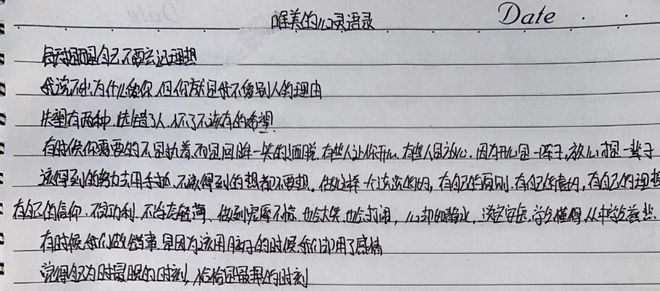 唯美的心灵语录
Date
每时提醒自己,不要忘记理想
我说不出为什么爱你,但你就是我不爱别人的理由
失望有两种,选错了人,不了不该有的希望
有时候你需要的不是执着,而是回眸一笑的洒脱,有些人让你开心,有些人是放心,因为开心是一阵子,放心 是一辈子
该得到的努力去用手抓,不该得到的想都不要想,做 一 有自己的原则,有自己的底线,有自己的理想
有自己的信仰,不 功利,不 轻薄,做到宠辱不惊,也 也 心却如静水,淡定安然,学会懂得,从中学会慈悲.
有时候你们做错事,是因为该用脑子的时候你们却用了感情
说得 为 时最 的时刻,恰恰是最 的时刻